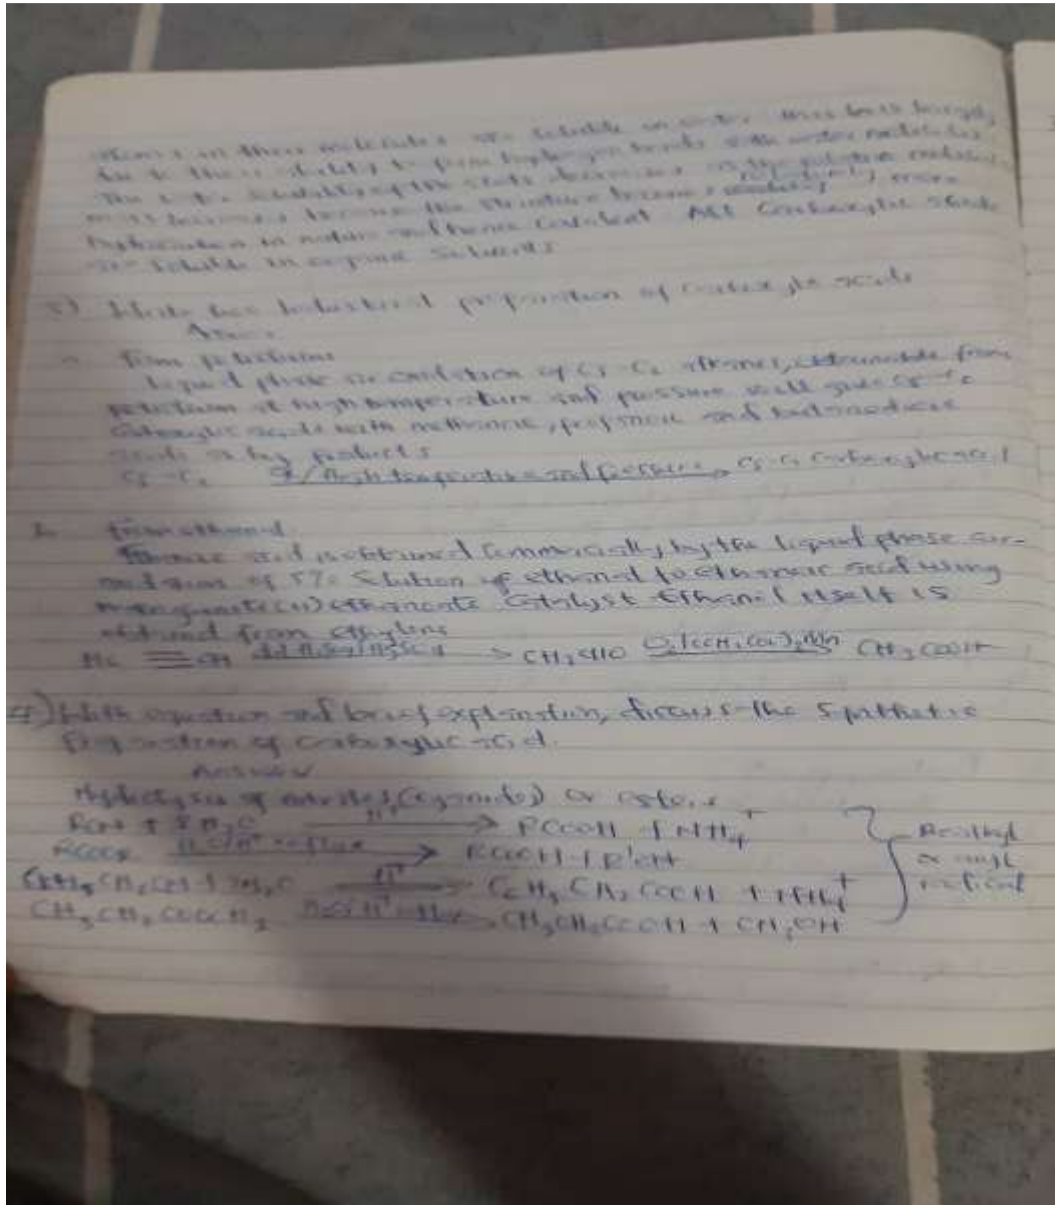 atoms in their molecules are soluble in water. This is largely
due to their ability to form hydrogen bonds with water molecules
The solubility of the acids decreases as the relative molecular
mass increases because the structure becomes relatively more
hydrocarbon in nature and hence Covalent. All Carboxylic acids
are soluble in organic Solvents
3) Write two Industrial preparation of Carboxylic acids
Answer
from petroleum
liquid phase air oxidation of C5-C7 alkanes, obtainable from
petroleum at high temperature and pressure will give C5-C7
Carboxylic acids with methanoic, propanoic and butanedioic
acids as by products
C5-C7 O2/High temperature and pressure → C5-C7 Carboxylic acid
2. from ethanal
Ethanoic acid is obtained Commercially by the liquid phase air-
oxidation of 5% Solution of ethanal to ethanoic acid using
manganate(II) ethanoate Catalyst Ethanal itself is
obtained from ethylene
HC≡CH → CH3CHO O2/(CH3COO)2Mn CH3COOH
4) With equation and brief explanation, discuss the Synthetic
Preparation of carboxylic acid.
Answer
Hydrolysis of nitriles (cyanides) or esters
RCN + 2H2O H+ → RCOOH + NH4+
RCOOR' H2O/H+ reflux → RCOOH + R'OH
C6H5CH2CN + 2H2O H+ → C6H5CH2COOH + NH4+
CH3CH2COOCH3 H2O/H+ reflux → CH3CH2COOH + CH3OH
R=alkyl
or aryl
radical